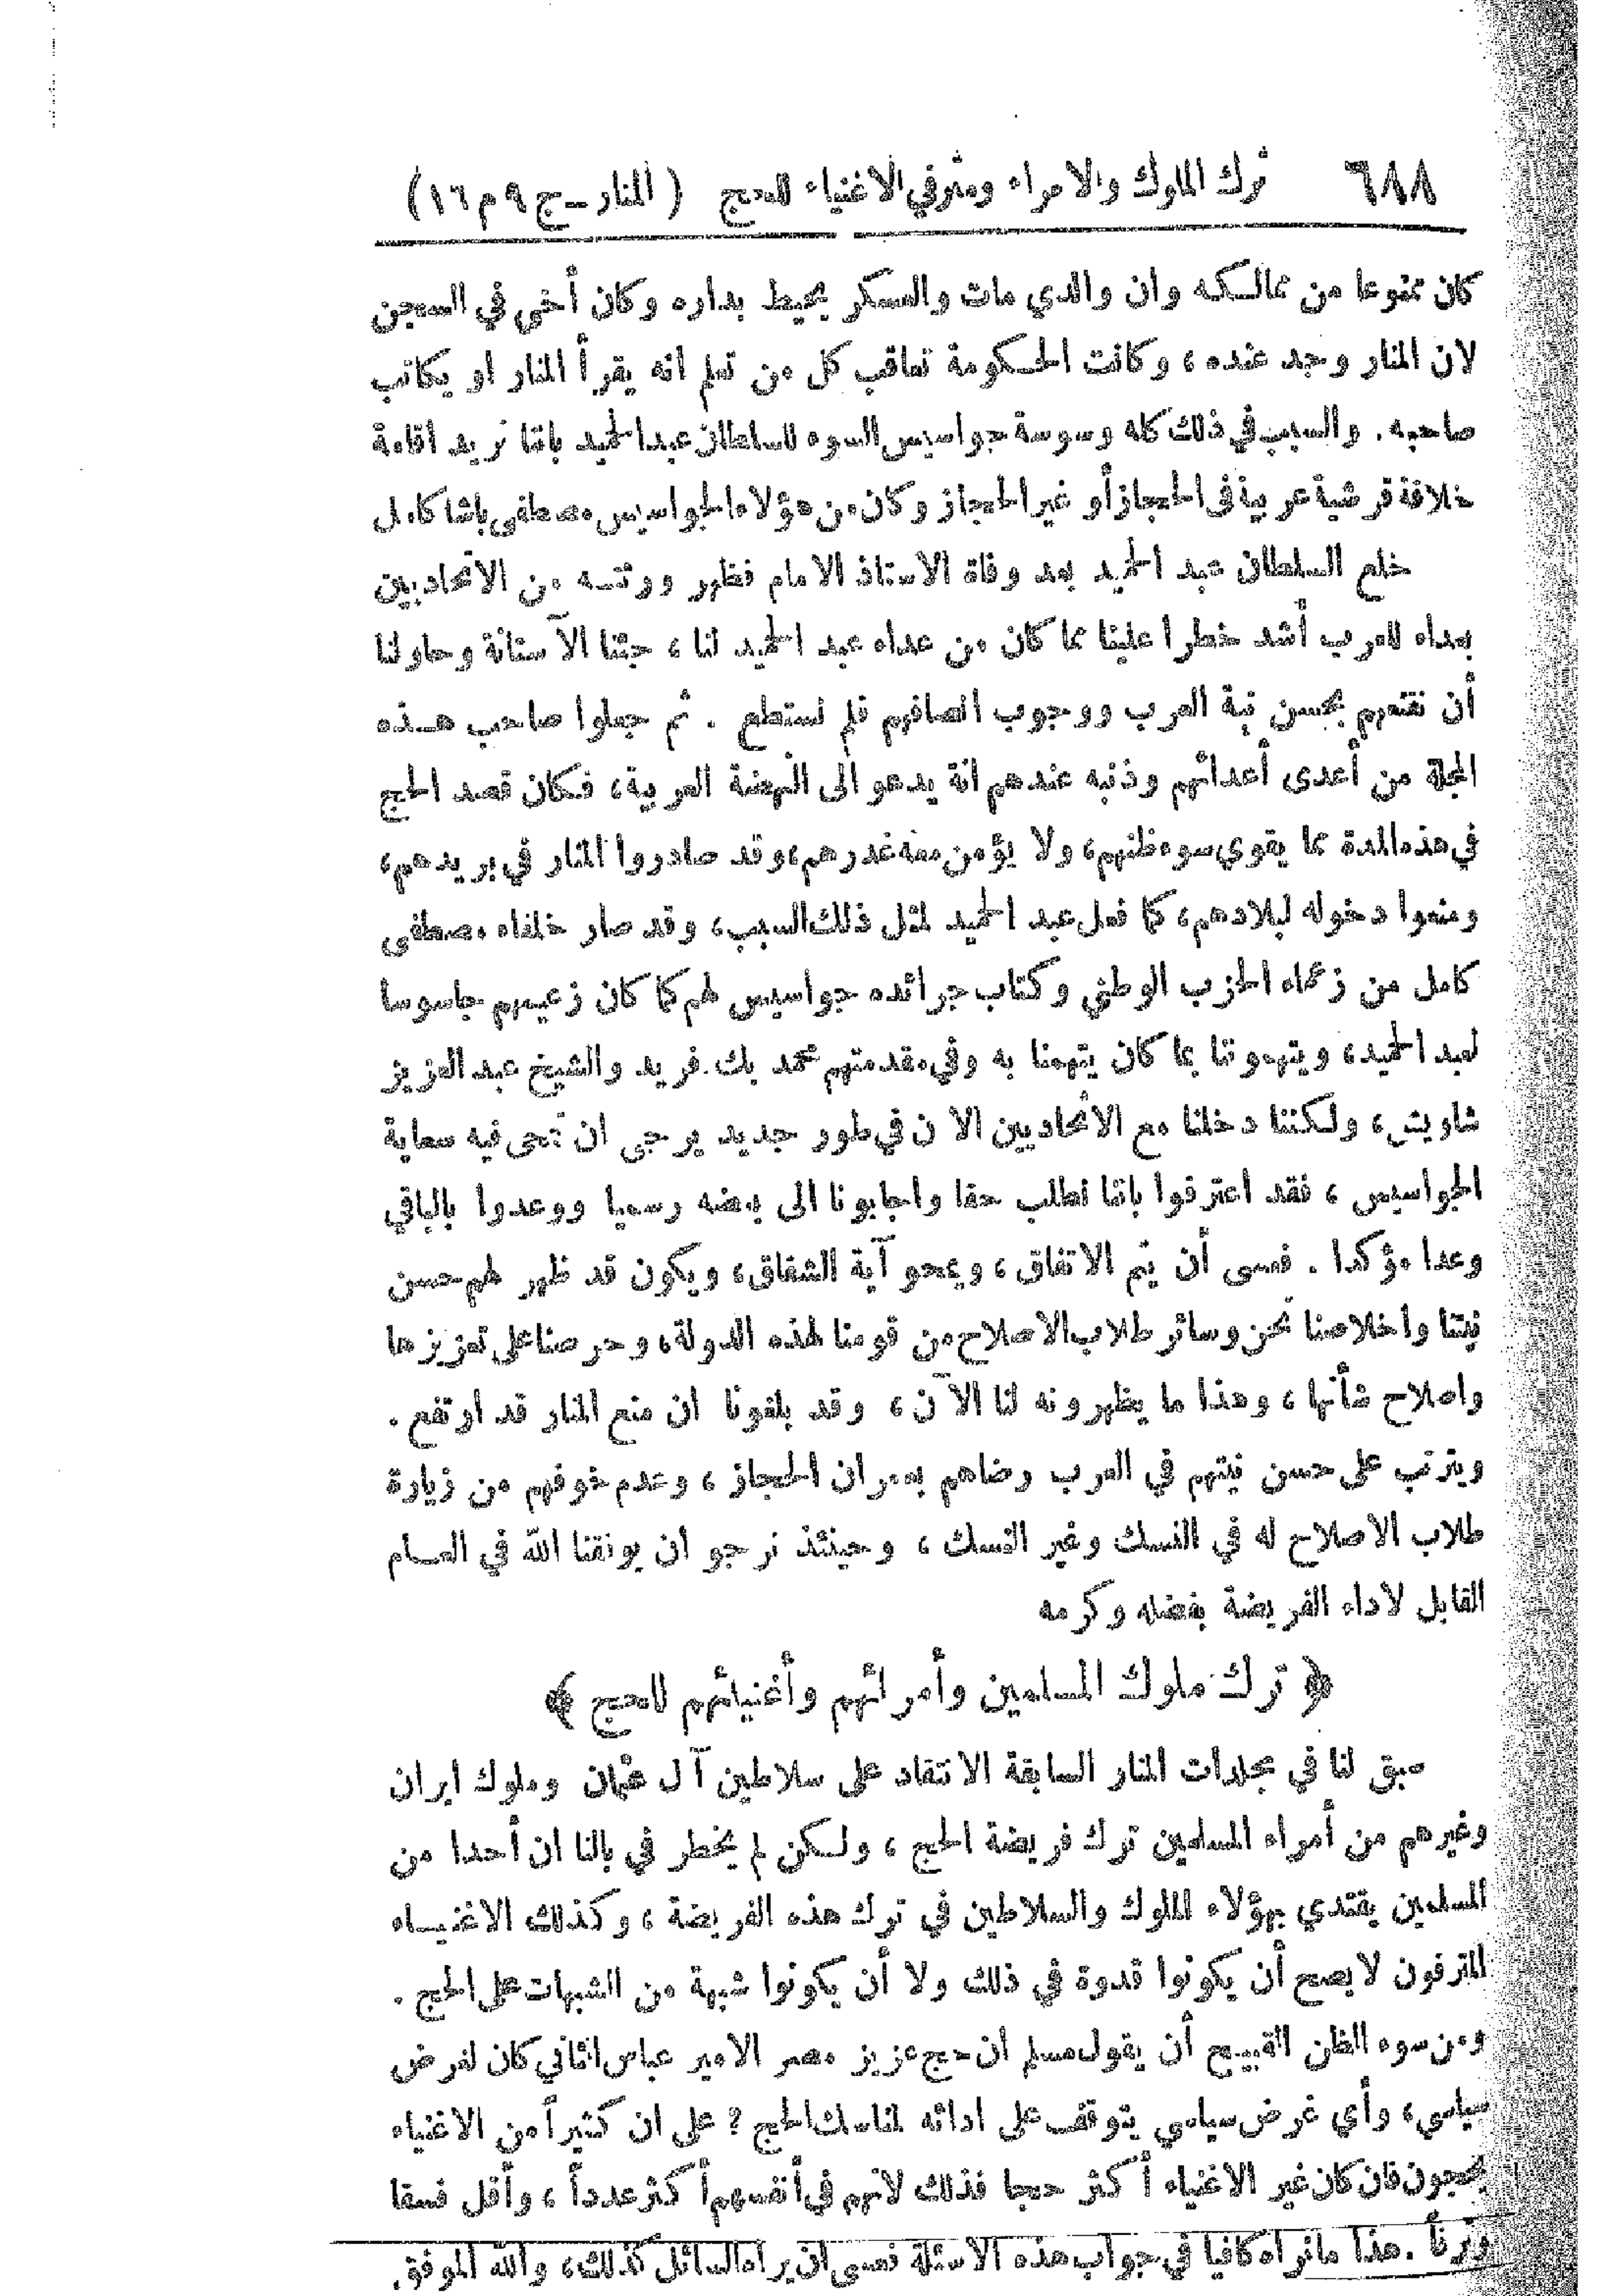 ٦٨٨ ترك الملوك والامراء ومترفي الاغنياء للحج (المنار – ج ٩ م ١٦)
كان ممنوعا من ممالكه وان والدي مات والعسكر يحيط بداره وكان أخي في السجن
لان المنار وجد عنده ، وكانت الحكومة تعاقب كل من تعلم انه يقرأ المنار او يكاتب
صاحبه . والسبب في ذلك كله وسوسة جواسيس السوء للسلطان عبد الحميد باننا نريد اقامة
خلافة قرشية عربية في الحجاز أو غير الحجاز وكان من هؤلاء الجواسيس مصطفى باشا كامل
خلع السلطان عبد الحميد بعد وفاة الاستاذ الامام فظهر وورثته من الاتحاديين
بعداء للعرب أشد خطرا علينا مما كان من عداء عبد الحميد لنا ، جئنا الآستانة وحاولنا
أن نقنعهم بحسن نية العرب ووجوب انصافهم فلم نستطع . ثم جعلوا صاحب هذه
المجلة من أعدى أعدائهم وذنبه عندهم انه يدعو الى النهضة العربية ، فكان قصد الحج
في هذه المدة مما يقوي سوء ظنهم ، ولا يؤمن معه غدرهم ، وقد صادروا المنار في بريدهم ،
ومنعوا دخوله لبلادهم ، كما فعل عبد الحميد لمثل ذلك السبب ، وقد صار خلفاء مصطفى
كامل من زعماء الحزب الوطني وكتاب جرائده جواسيس لهم كما كان زعيمهم جاسوسا
لعبد الحميد ، ويتهموننا بما كان يتهمنا به وفي مقدمتهم محمد بك فريد والشيخ عبد العزيز
شاويش ، ولكننا دخلنا مع الاتحاديين الا ن في طور جديد يرجى ان تمحى فيه سعاية
الجواسيس ، فقد اعترفوا باننا نطلب حقا واجابونا الى بعضه رسميا ووعدوا بالباقي
وعدا مؤكدا . فعسى أن يتم الاتفاق ، ويمحو آية الشقاق ، ويكون قد ظهر لهم حسن
نيتنا واخلاصنا نحن وسائر طلاب الاصلاح من قومنا لهذه الدولة ، وحرصنا على تعزيزها
واصلاح شأنها ، وهذا ما يظهرونه لنا الآن ، وقد بلغونا ان منع المنار قد ارتفع .
ويترتب على حسن نيتهم في العرب رضاهم بعمران الحجاز ، وعدم خوفهم من زيارة
طلاب الاصلاح له في النسك وغير النسك ، وحينئذ نرجو ان يوفقنا الله في العام
القابل لاداء الفريضة بفضله وكرمه
﴿ ترك ملوك المسلمين وأمرائهم وأغنيائهم للحج ﴾
سبق لنا في مجلدات المنار السابقة الانتقاد على سلاطين آل عثمان وملوك ايران
وغيرهم من أمراء المسلمين ترك فريضة الحج ، ولكن لم يخطر في بالنا ان أحدا من
المسلمين يقتدي بهؤلاء الملوك والسلاطين في ترك هذه الفريضة ، وكذلك الاغنياء
المترفون لا يصح أن يكونوا قدوة في ذلك ولا أن يكونوا شبهة من الشبهات على الحج .
ومن سوء الظن القبيح أن يقول مسلم ان حج عزيز مصر الامير عباس الثاني كان لغرض
سياسي ، وأي غرض سياسي يتوقف على ادائه لمناسك الحج ؟ على ان كثيراً من الاغنياء
يحجون فان كان غير الاغنياء أكثر حجا فذلك لانهم في أنفسهم أكثر عدداً ، وأقل فسقا
وترفاً . هذا ما نراه كافيا في جواب هذه الاسئلة فعسى ان يراه السائل كذلك ، والله الموفق